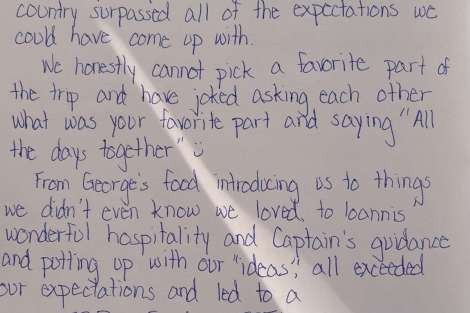 country surpassed all of the expectations we
could have come up with.
We honestly cannot pick a favorite part of
the trip and have joked asking each other
what was your favorite part and saying "All
the days together" ☺
From George's food introducing us to things
we didn't even know we loved, to Ioannis'
wonderful hospitality and Captain's guidance
and putting up with our "ideas", all exceeded
our expectations and led to a